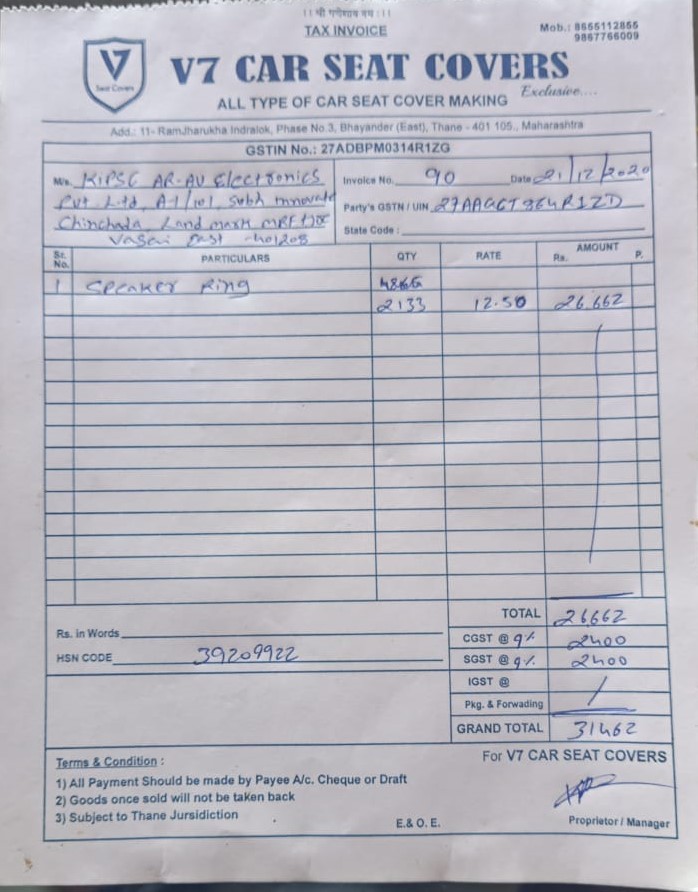 ।। श्री गणेशाय नमः ।।
TAX INVOICE
Mob.: 8655112855
9867766009
V7
Seat Covers
V7 CAR SEAT COVERS
Exclusive....
ALL TYPE OF CAR SEAT COVER MAKING
Add.: 11- RamJharukha Indralok, Phase No.3, Bhayander (East), Thane - 401 105., Maharashtra
GSTIN No.: 27ADBPM0314R1ZG
M/s. KIPSG AR-AU Electronics
Pvt Ltd, A-1/101, Subh Innovate
Chinchada Land mark MRF
Vasai East 401208
Invoice No. 90 Date 21/12/2020
Party's GSTN / UIN
State Code :
Sr. No. PARTICULARS QTY RATE AMOUNT Rs. P.
1 Speaker Ring
2133 12.50 26,662
TOTAL 26,662
Rs. in Words
CGST @ 9% 2400
HSN CODE 39209922
SGST @ 9% 2400
IGST @
Pkg. & Forwading
GRAND TOTAL 31462
Terms & Condition :
For V7 CAR SEAT COVERS
1) All Payment Should be made by Payee A/c. Cheque or Draft
2) Goods once sold will not be taken back
3) Subject to Thane Jursidiction
E.& O. E.
Proprietor / Manager